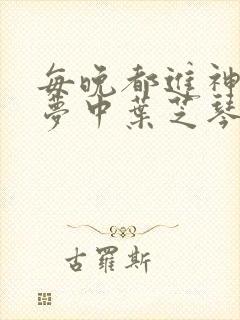 每晚都進神
夢中葉芝琴
古羅斯